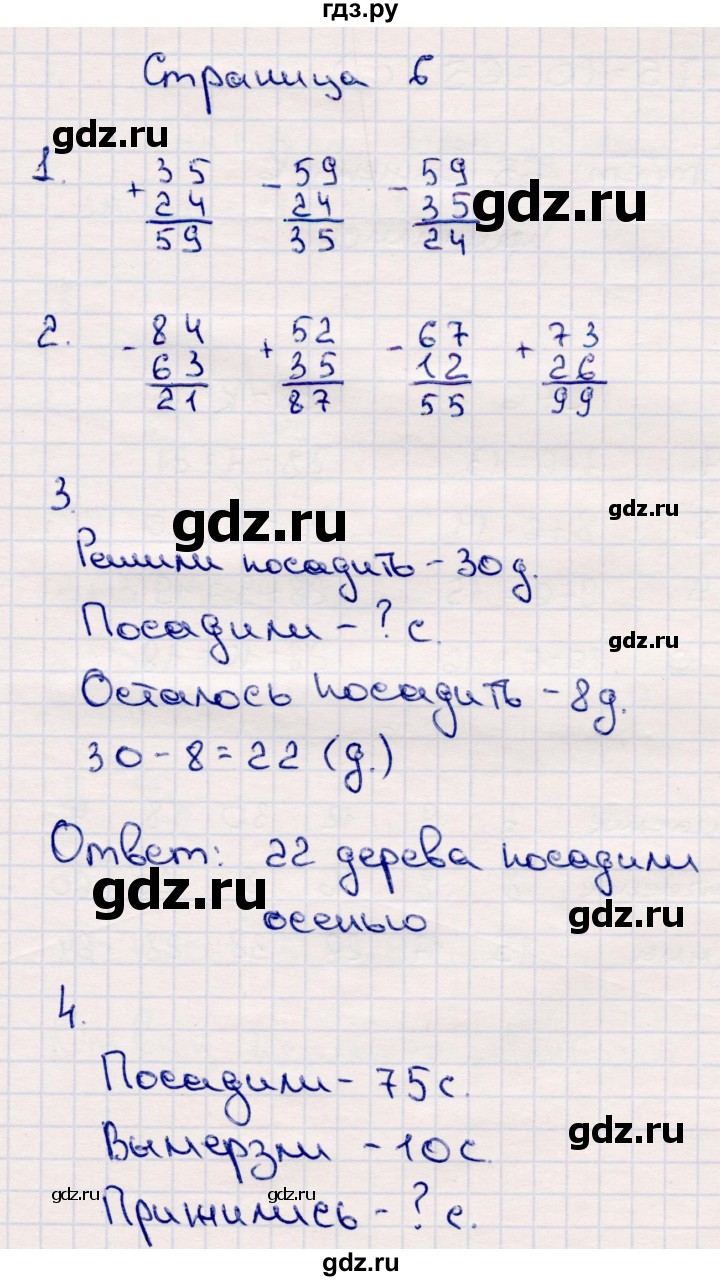 гдз.ру
Страница 6
gdz.ru
1. + 35 - 59 - 59
24 24 35 gdz.ru
59 35 24
2. - 84 + 52 - 67 + 73
63 35 12 26
21 87 55 99
3.
gdz.ru gdz.ru
Решили посадить - 30 д.
Посадили - ? с. gdz.ru
Осталось посадить - 8 д.
30 - 8 = 22 (д.)
Ответ: 22 дерева посадили
gdz.ru осенью gdz.ru
4.
Посадили - 75 с.
Вымерзли - 10 с. gdz.ru
gdz.ru gdz.ru gdz.ru
Прижились - ? с.
gdz.ru